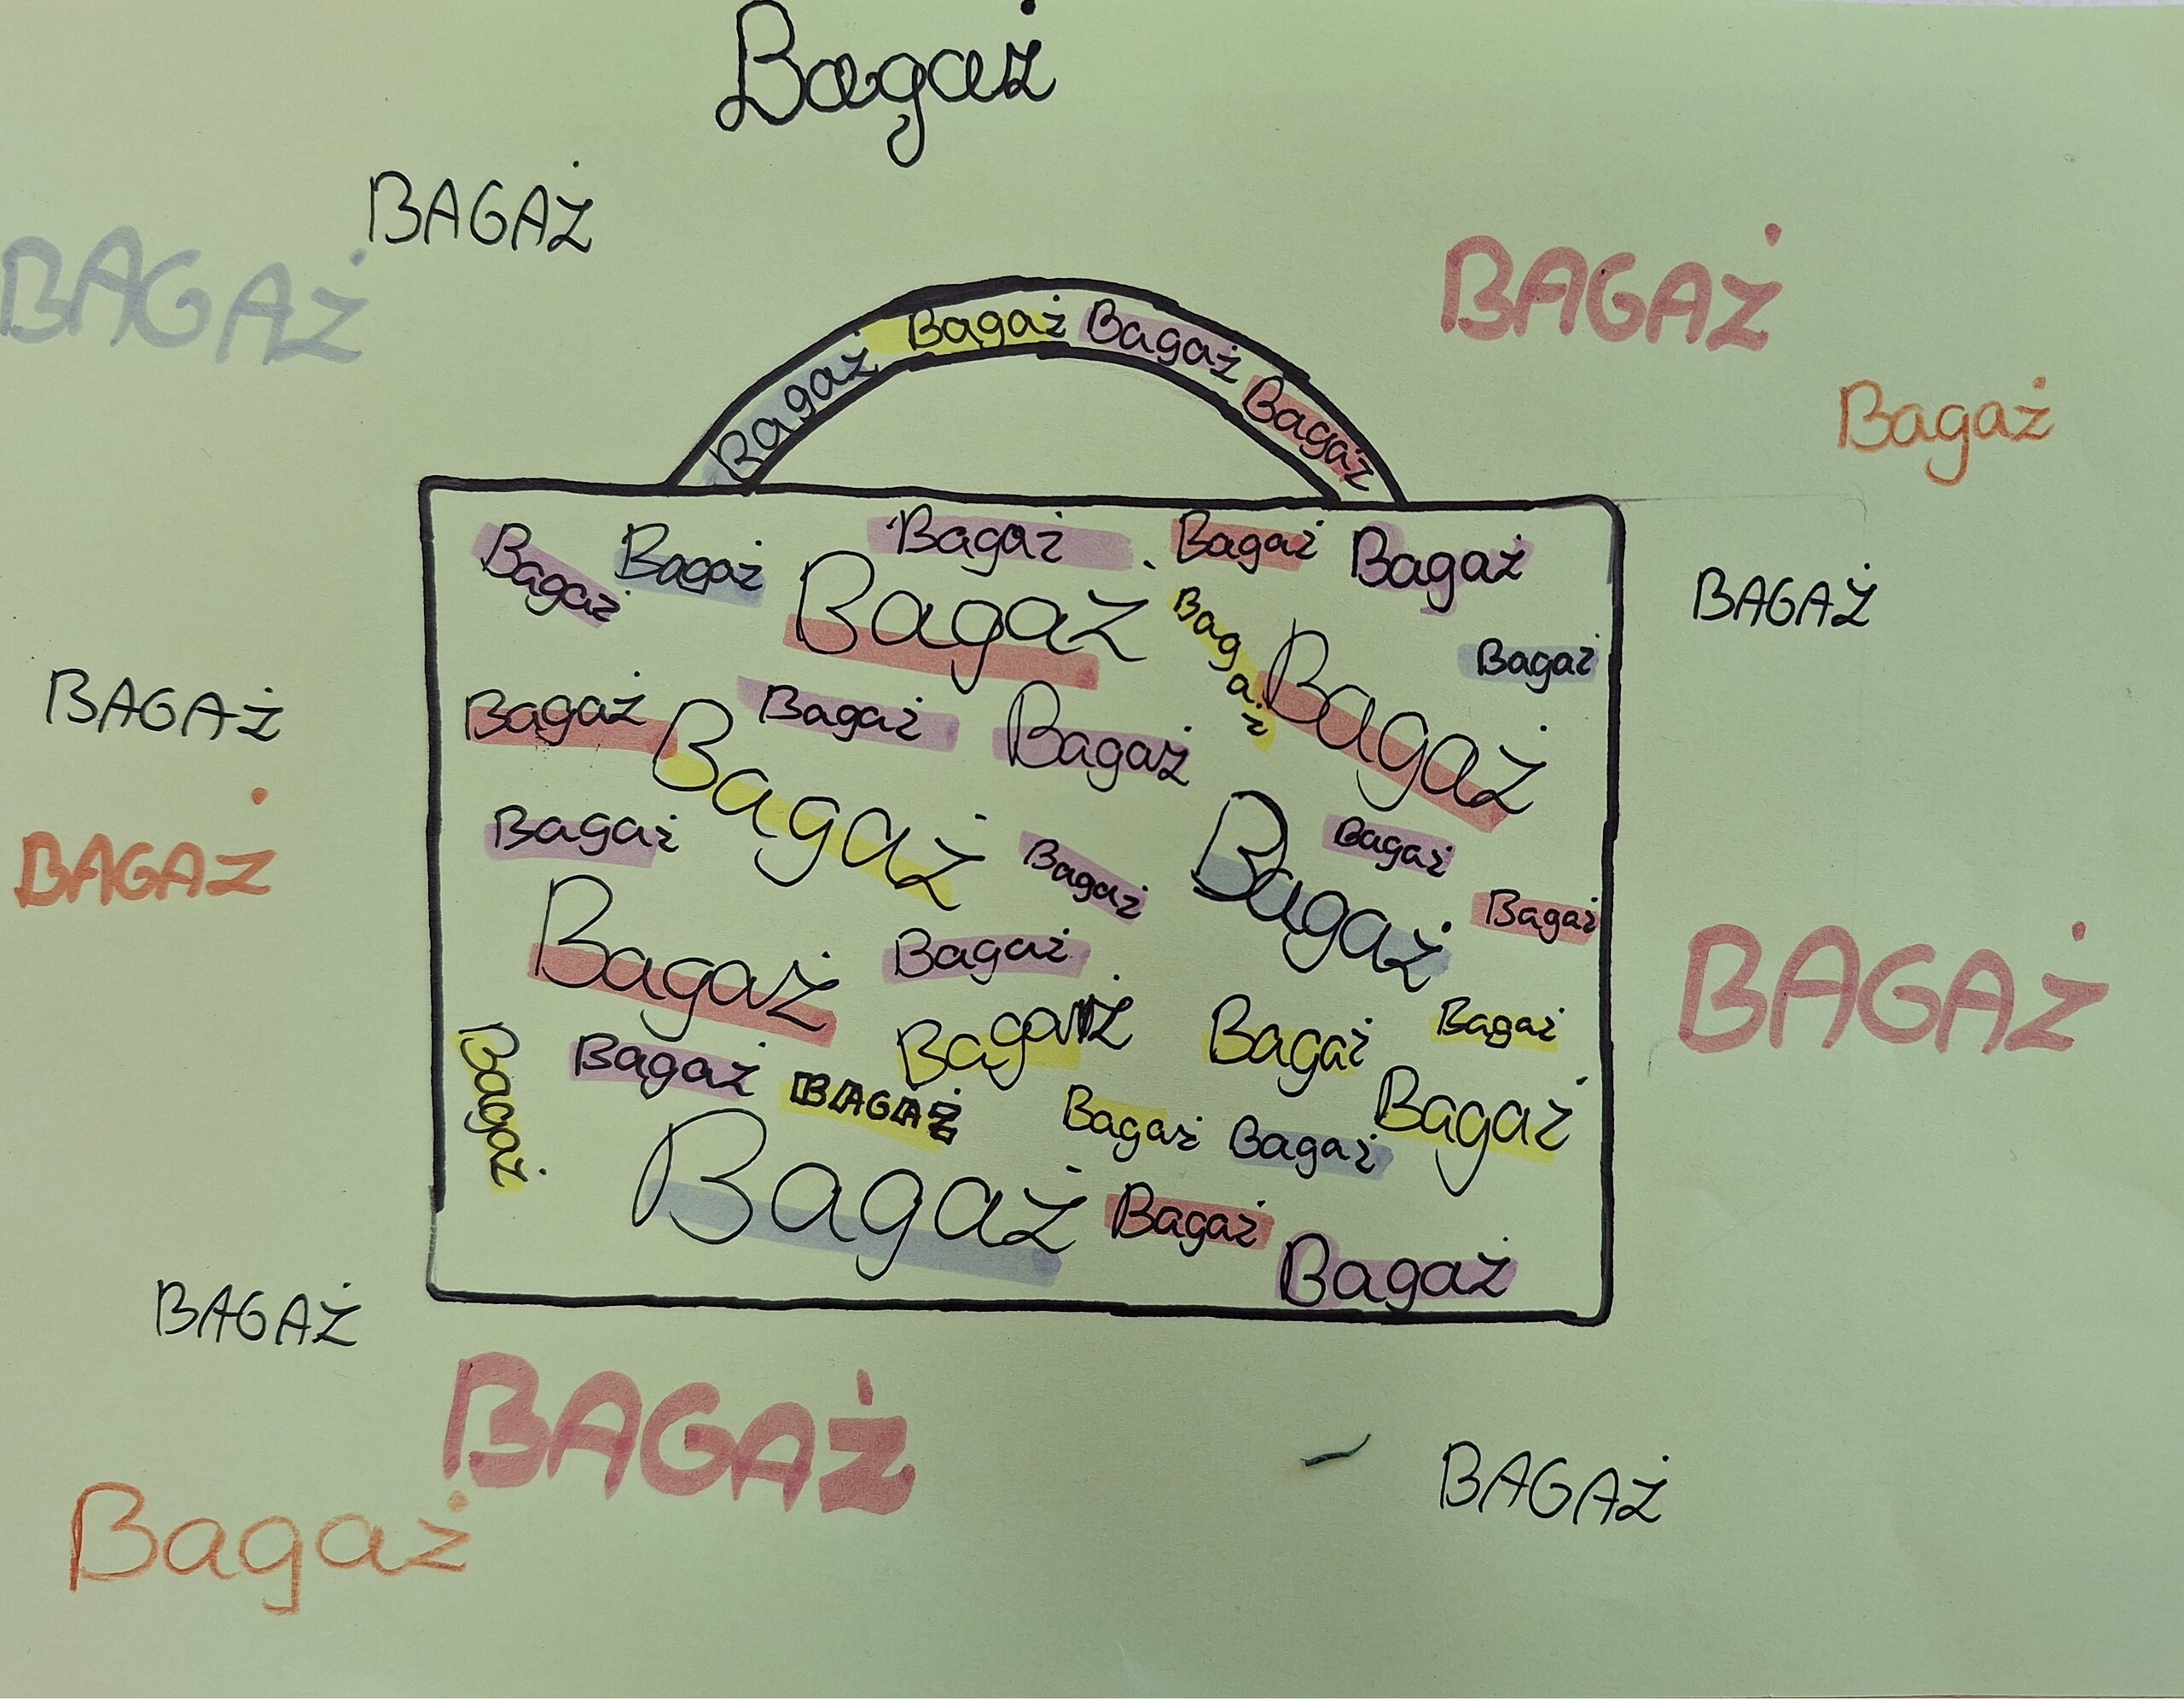 Bagaż
BAGAŻ
BAGAŻ
BAGAŻ
Bagaż
Bagaż
Bagaż
Bagaż
Bagaż
Bagaż
Bagaż
Bagaż
Bagaż
Bagaż
Bagaż
Bagaż
Bagaż
Bagaż
BAGAŻ
Bagaż
BAGAŻ
Bagaż
Bagaż
Bagaż
Bagaż
Bagaż
Bagaż
Bagaż
Bagaż
Bagaż
BAGAŻ
Bagaż
Bagaż
Bagaż
BAGAŻ
Bagaż
Bagaż
Bagaż
Bagaż
Bagaż
BAGAŻ
Bagaż
Bagaż
Bagaż
Bagaż
Bagaż
Bagaż
BAGAŻ
BAGAŻ
BAGAŻ
Bagaż